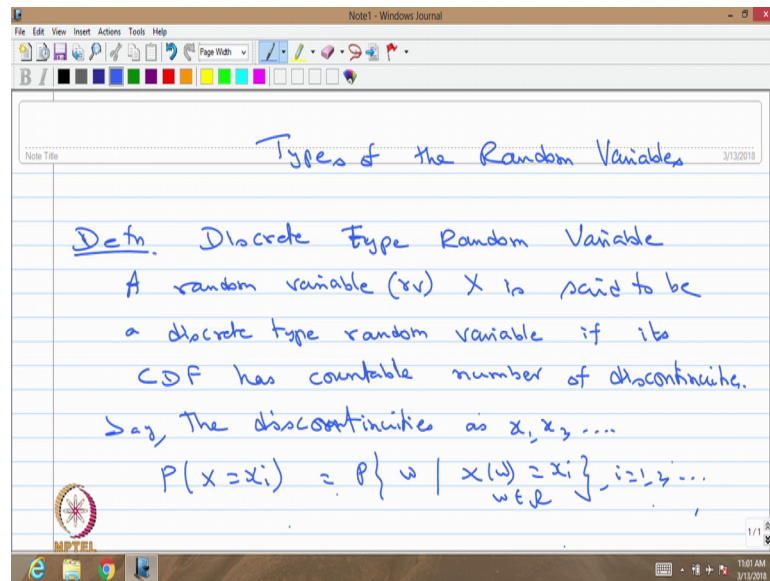 Note1 - Windows Journal
File Edit View Insert Actions Tools Help
Page Width
B I
Note Title
Types of the Random Variables
3/13/2018
Defn. Discrete type Random Variable
A random variable (rv) X is said to be
a discrete type random variable if its
CDF has countable number of discontinuities.
Say, The discontinuities as x₁, x₂, ....
P(X = xi) = P{ w | X(w) = xi }, i=1,2, ...
w ∈ Ω
1/1
NPTEL
11:01 AM
3/13/2018